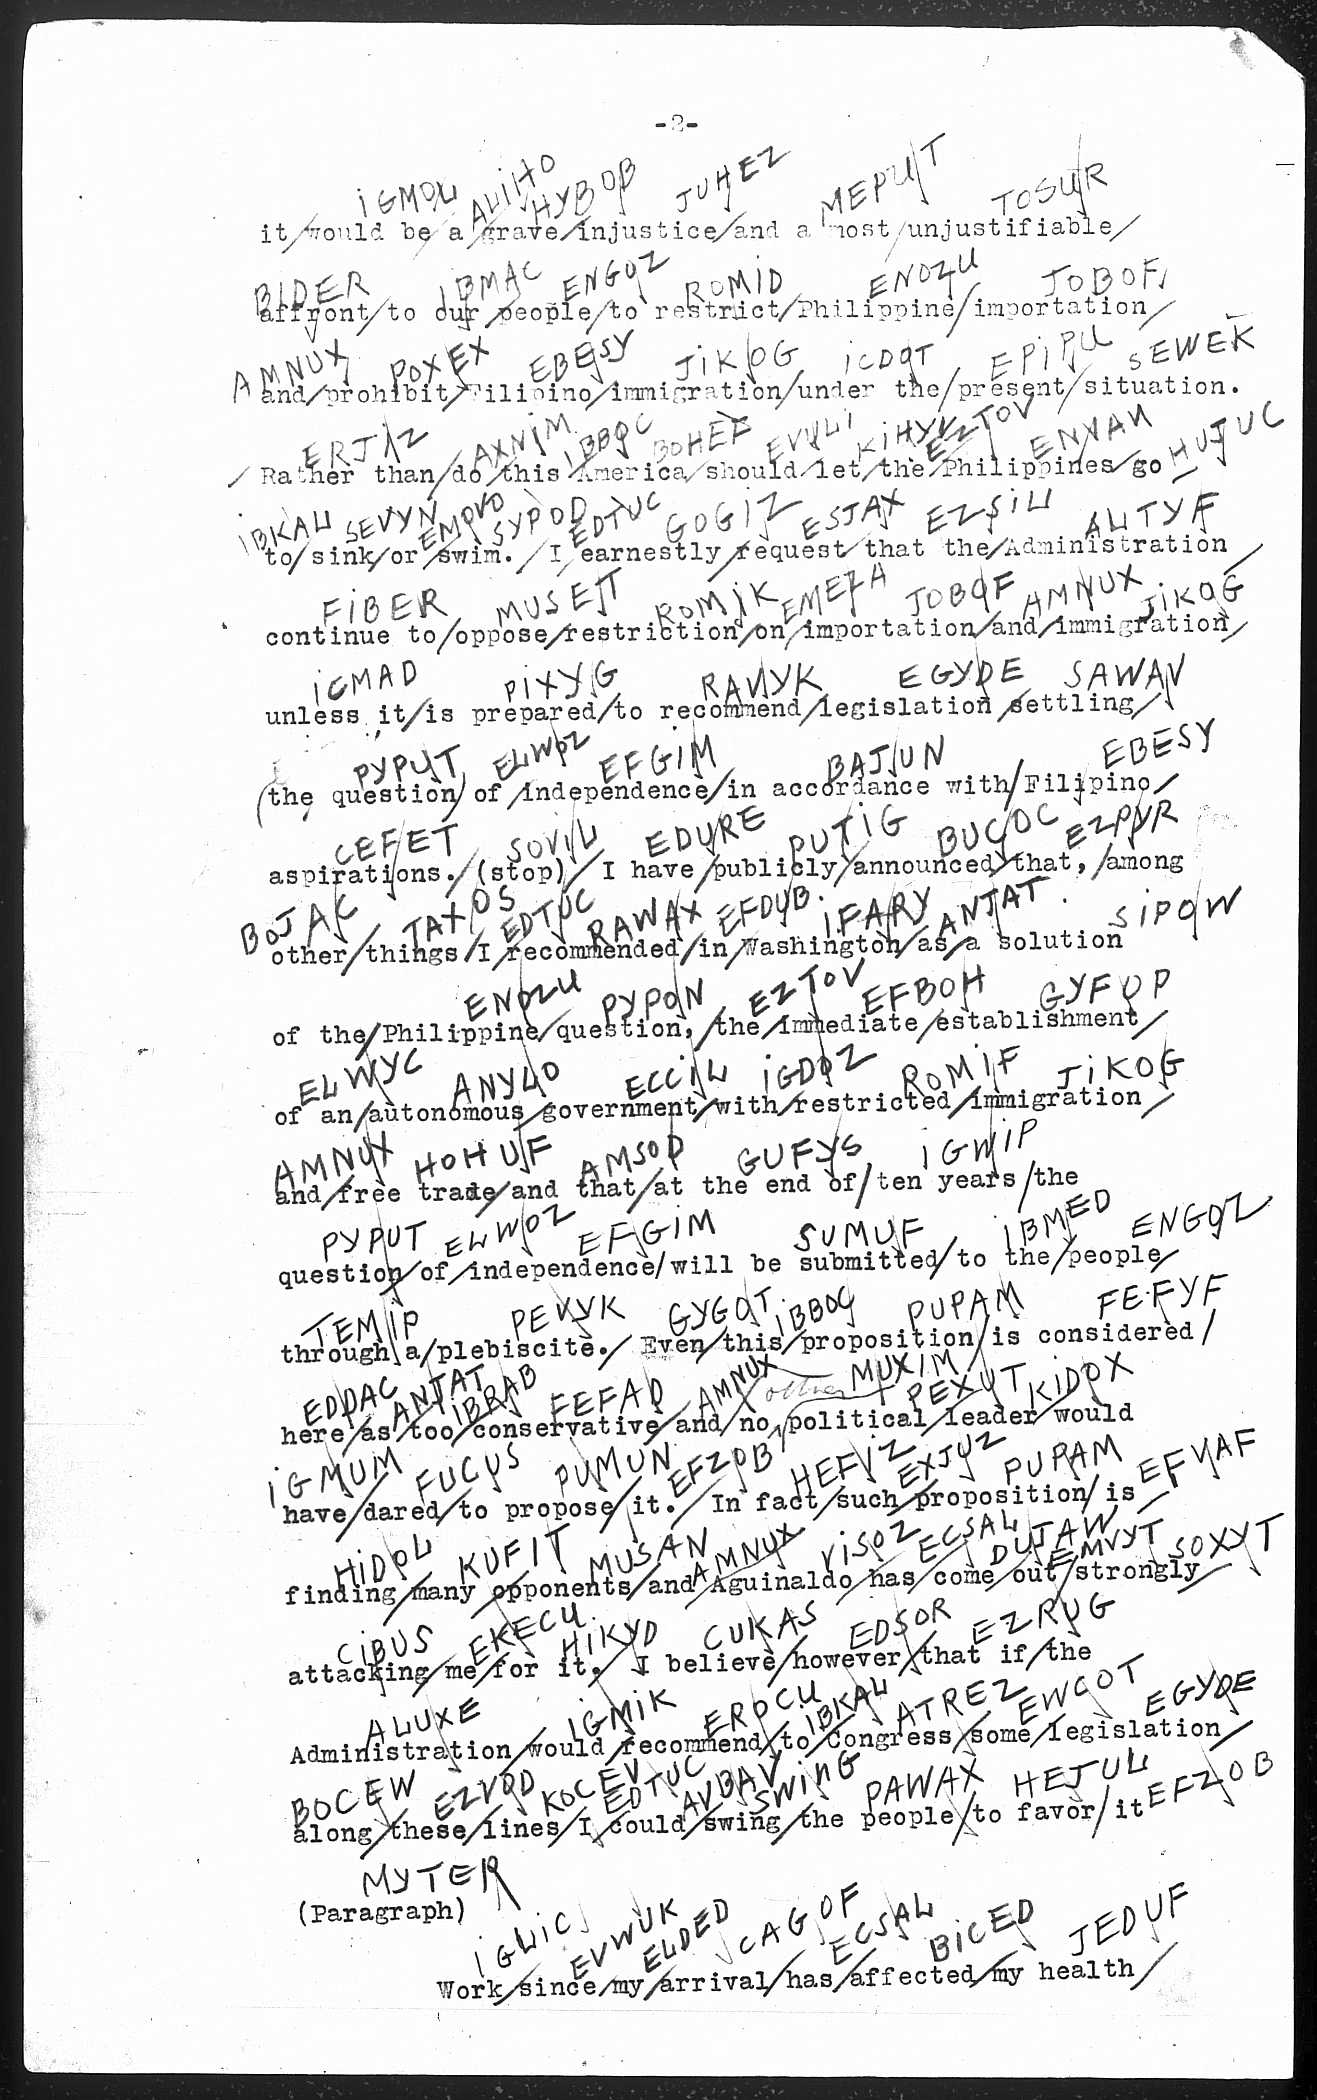 -2-
IGMOL ALIHO HYBOB JUHEZ MEPUT TOSUR
it/would be/a/grave/injustice/and a most/unjustifiable/
BIDER IBMAC ENGOZ ROMID ENOZU JOBOF
affront/to our/people/to restrict/Philippine/importation/
AMNUX POXEX EBESY JIKOG ICDOT EPIPU SEWEK
and/prohibit/Filipino/immigration/under the/present/situation.
ERJAZ AXNIM IBBOC BOHEF EVULI KIHYV EZTOV ENVAN HUJUC
/Rather than/do/this/America/should/let/the/Philippines/go/
IBKAL SEVYN EMOVO SYPOD EDTUC GOGIZ ESJAX EZSIL ALTYF
to/sink/or/swim./I/earnestly/request/that the/Administration/
FIBER MUSET ROMIK EMEZA JOBOF AMNUX JIKOG
continue to/oppose/restriction/on/importation/and/immigration/
ICMAD PIXYG RAVYK EGYDE SAWAV
unless it/is prepared/to recommend/legislation/settling/
PYPUT ELWOZ EFGIM BAJUN EBESY
(the question/of/independence/in accordance with/Filipino/
CEFET SOVIL EDURE PUTIG BUCOC EZPYR
aspirations./(stop)/I have/publicly/announced/that,/among
BOJAC TAXOS EDTUC RAWAX EFDUB IFARY ANJAT SIPOW
other/things/I/recommended/in/Washington/as/a solution
ENOZU PYPON EZTOV EFBOH GYFOP
of the/Philippine/question,/the/immediate/establishment/
ELWYC ANYLO ECCIL IGDOZ ROMIF JIKOG
of an/autonomous/government/with/restricted/immigration/
AMNUX HOHUF AMSOP GUFYS IGWIP
and/free trade/and that/at the end of/ten years/the
PYPUT ELWOZ EFGIM SUMUF IBMED ENGOZ
question/of/independence/will be submitted/to the/people/
TEMIP PEVYK GYGOT IBBOC PUPAM FEFYF
through a/plebiscite./Even/this/proposition/is considered/
EDDAC ANJAT IBRAB FEFAD AMNUX other MUXIM PEXUT KIDOX
here/as/too/conservative/and/no political/leader/would
IGMUM FUCUS PUMUN EFZOB HEFIZ EXJUZ PUPAM EFVAF
have/dared/to propose/it./In fact/such/proposition/is/
HIDOL KUFIT MUSAN AMNUX VISOZ ECSAL DUJAW EMVYT SOXYT
finding/many/opponents/and/Aguinaldo/has/come/out/strongly/
CIBUS EKECU HIKYD CUKAS EDSOR EZRUG
attacking/me/for it./I believe/however/that if/the
ALUXE IGMIK EROCU IBKAL ATREZ EWCOT EGYDE
Administration/would/recommend/to/Congress/some/legislation/
BOCEW EZVOD KOCEV EDTUC AVBAV SWING PAWAX HEJUL EFZOB
along/these/lines/I/could/swing/the people/to favor/it
MYTER
(Paragraph)
IGLIC EVWUK ELDED CAGOF ECSAL BICED JEDUF
Work/since/my/arrival/has/affected/my health/